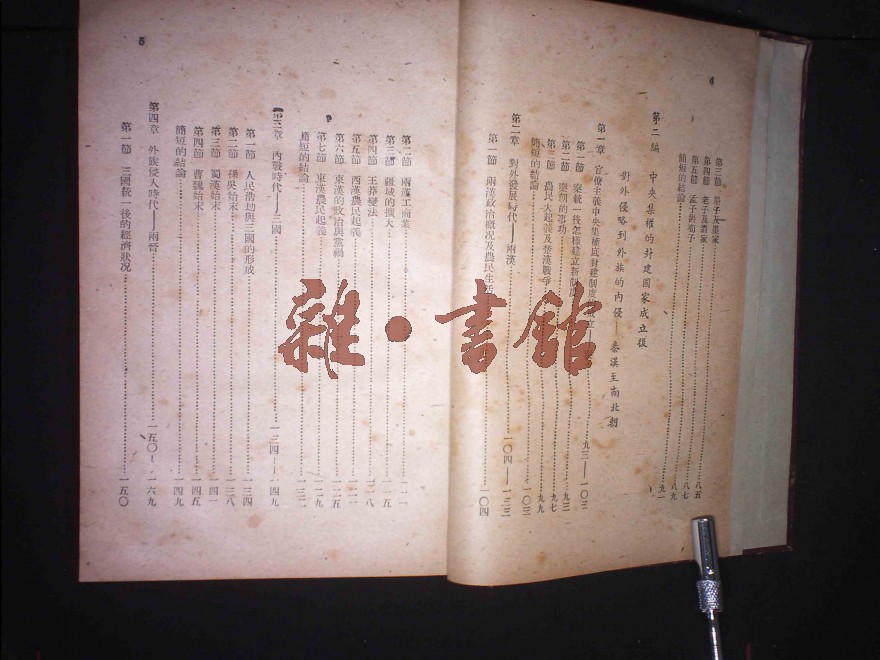 4
第三節 墨子及墨家……八五
第四節 老子及道家……八七
第五節 孟子與荀子……八九
簡短的結論……九一
第二編 中央集權的封建國家成立後
對外侵略到外族的內侵——秦漢至南北朝
第一章 官僚主義中央集權底封建制度成立——……九三——一〇三
第一節 秦統一後怎樣建立新制度……九三
第二節 秦朝的事功……九七
第三節 農民大起義及楚漢戰爭……九九
簡短的結論……一〇三
第二章 對外發展時代——兩漢……一〇四——一三三
第一節 兩漢政治概況及農民生活……一〇四
5
第二節 兩漢工商業……一一一
第三節 疆域的擴大……一一五
第四節 王莽變法……一一八
第五節 西漢農民起義……一二一
第六節 東漢的政治與黨禍……一二五
第七節 東漢農民起義……一二九
簡短的結論……一三二
第三章 內戰時代——三國……一三四——一四九
第一節 人民浩劫與三國的形成……一三四
第二節 孫吳始末……一三八
第三節 蜀漢始末……一四一
第四節 曹魏始末……一四五
簡短的結論……一四九
第四章 外族侵入時代——兩晉……一五〇—一六九
第一節 三國統一後的經濟狀況……一五〇
雜·書館